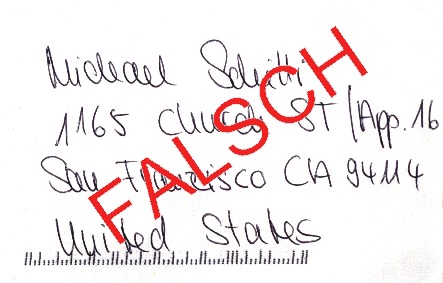 Michael Schilli
1165 Church ST / App. 16
San Francisco CA 94114
United States
FALSCH